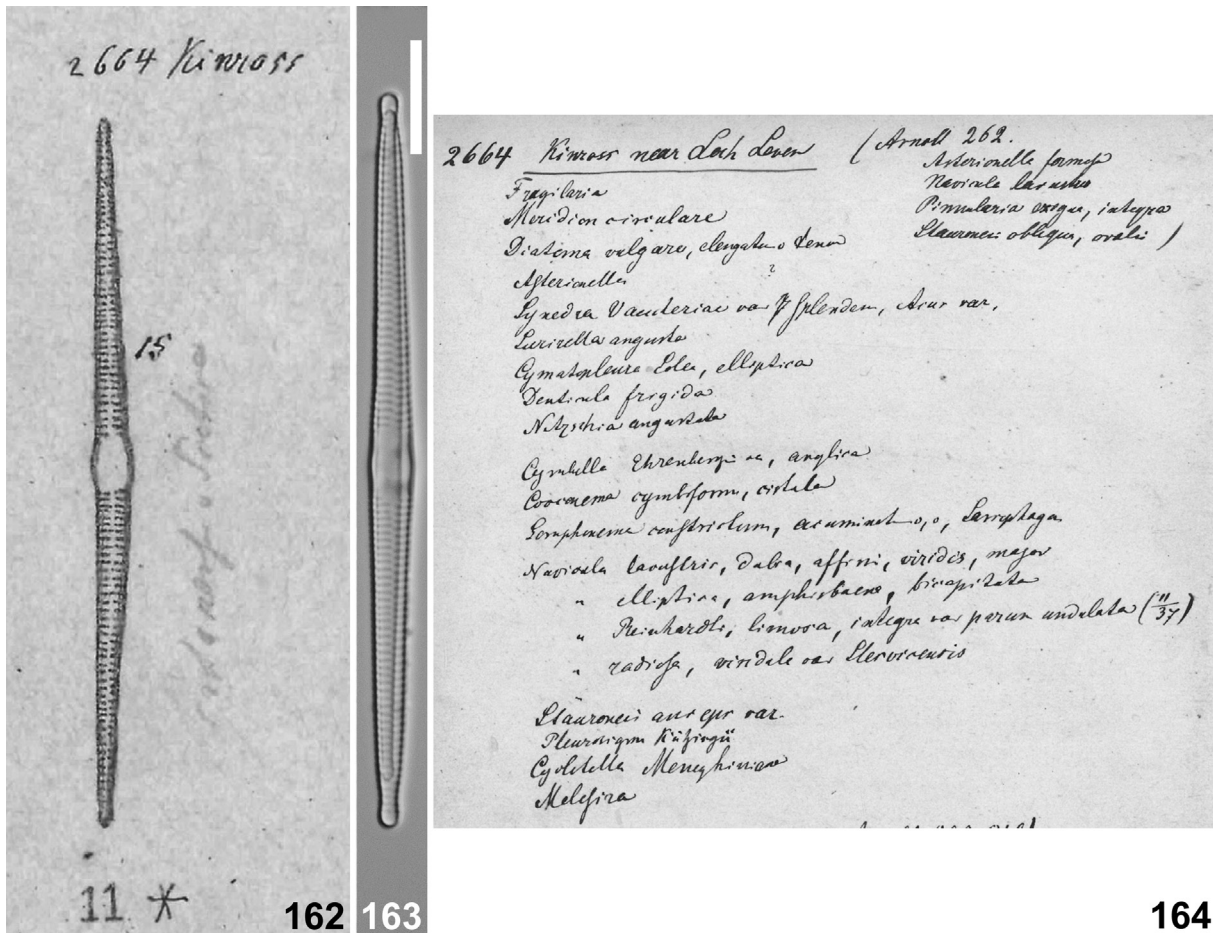 2664 Kinross
15
11 *
162
163
2664 Kinross near Loch Leven (Arnott 262.
Asterionella formosa
Navicula lacustris
Pinnularia exigua, integra
Stauroneis obliqua, ovalis )
Fragilaria
Meridion circulare
Diatoma vulgare, elongatum tenue
Asterionella
?
Synedra Vaucheriae var Splendens, Acus var.
Surirella angusta
Cymatopleura Solea, elliptica
Denticula frigida
Nitzschia angustata
Cymbella Ehrenbergii, anglica
Cocconema cymbiforme, cistula
Gomphonema constrictum, acuminatum
Navicula lacustris, dubia, affinis, viridis, major
" elliptica, amphisbaena, bicapitata
" Reinhardti, limosa, integra var parum undulata (11/37)
" radiosa, viridula var Slesvicensis
Stauroneis anceps var.
Pleurosigma Kützingii
Cyclotella Meneghiniana
Melosira
164